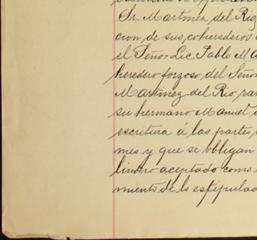 Sr. Martinez del Rio,
cion de sus coherederos
el Señor Lic. Pablo Ma
heredero forzoso del Seño
Martinez del Rio, par
su hermano Manuel
escritura á las partes
mes y que se obligan
lindero aceptado como
miento de lo estipulad